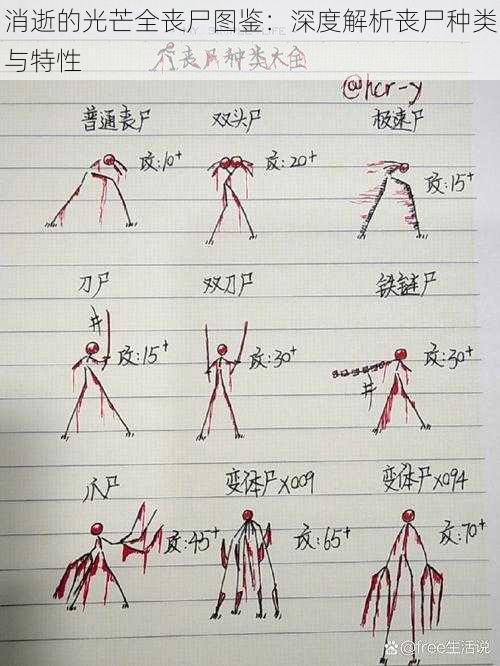 消逝的光芒全丧尸图鉴：深度解析丧尸种类
与特性
丧尸种类大全
@hcr-y
普通丧尸 双头尸 极速尸
攻:10+ 攻:20+ 攻:15+
刀尸 双刀尸 铁链尸
攻:15+ 攻:30+ 攻:30+
爪尸 变体尸X009 变体尸X094
攻:45+ 攻:65+ 攻:70+
@free生活说